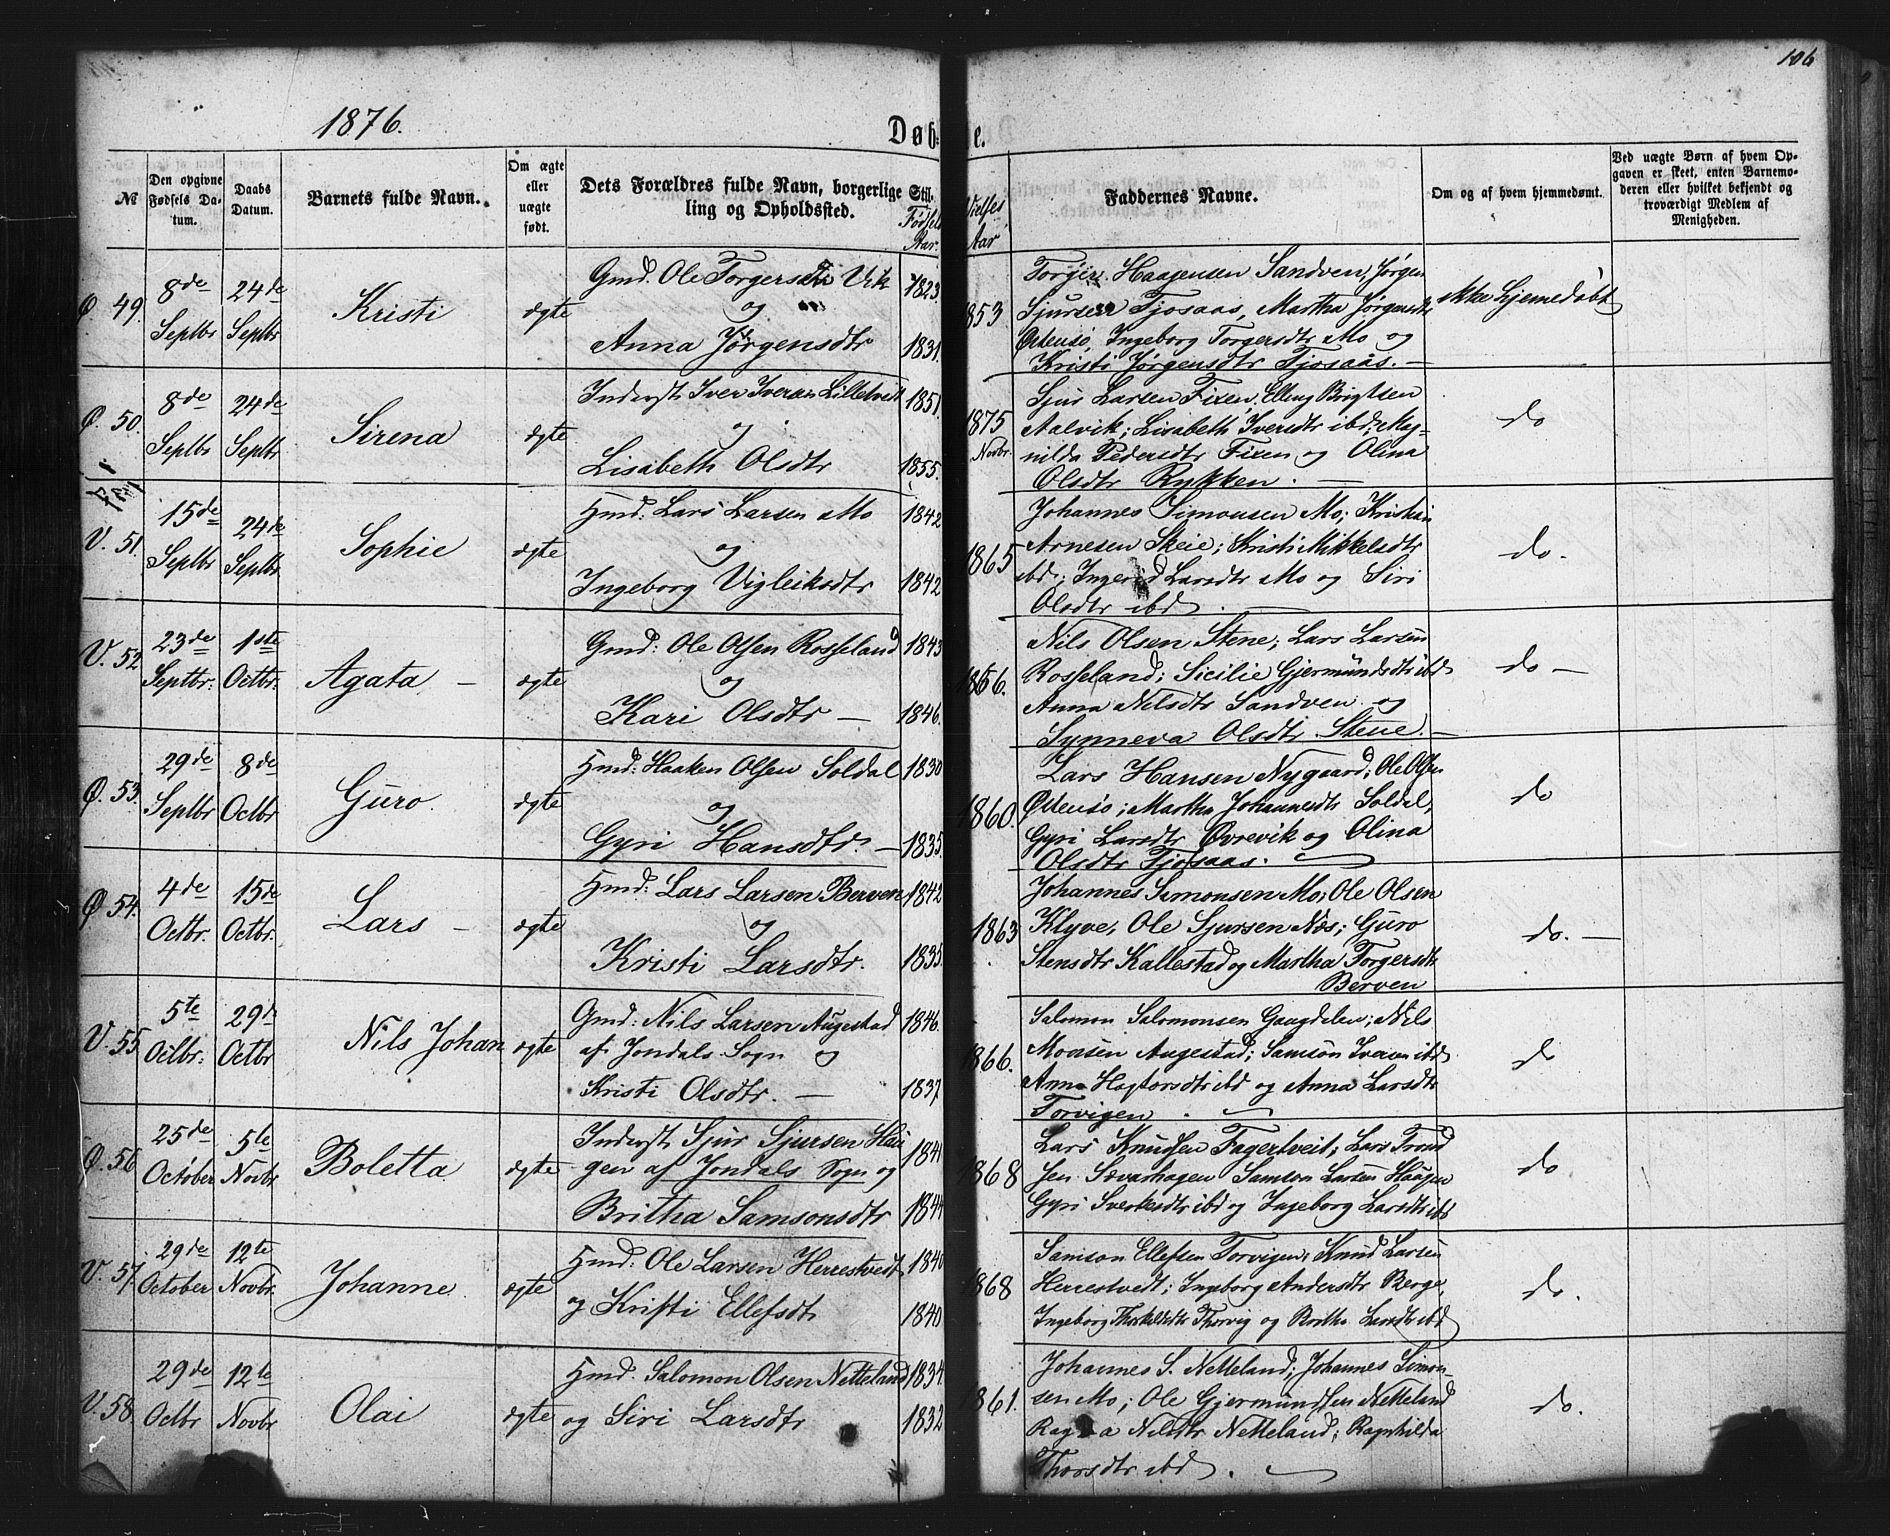 106
1876.
Døb- e.
№
Den opgivne Fødsels Datum.
Daabs Datum.
Barnets fulde Navn.
Om ægte eller uægte født.
Dets Forældres fulde Navn, borgerlige Stilling og Opholdssted.
Fødsels Aar.
Vielses Aar
Faddernes Navne.
Om og af hvem hjemmedøbt.
Ved uægte Børn af hvem Opgaven er skeet, enten Barnemoderen eller hvilket bekjendt og troværdigt Medlem af Menigheden.
Ø 49.
8de Septbr
24de Septbr
Kristi
ægte
Gmd. Ole Torgersen Vik 1823
og
Anna Jørgensdtr 1831.
1853
Torgir Haagensen Sandven, Jørgen
Sjursen Tjosaas, Martha Jørgensdtr
Østensø, Ingeborg Torgersdtr Mo og
Kristi Jørgensdtr Tjosaas. —
ikke hjemedøbt
Ø. 50.
8de Septbr
24de Septbr
Sirena
ægte
Inderst Iver Iversen Lilletvedt 1851.
og
Lisabeth Olsdtr 1855.
1875 Novbr.
Sjur Larsen Fixen, Elling Brigtsen
Aalvik; Lisabeth Iversdtr ibd; Mag-
nilda Pedersdtr Fixen og Olina
Olsdtr Rykken. —
do
V. 51.
15de Septbr
24de Septbr
Sophie
ægte
Hmd: Lars Larsen Mo 1842
og
Ingeborg Vigleiksdtr 1842
1865
Johannes Simonsen Mo; Kristian
Arnesen Skeie; Kristi Mikkelsdtr
ibd; Ingerid Larsdtr Mo og Siri
Olsdtr ibd.
do.
V. 52
23de Septbr.
1ste Octbr.
Agata —
ægte
Gmd: Ole Olsen Rosseland 1843
og
Kari Olsdtr — 1846.
1866.
Nils Olsen Stene; Lars Larsen
Rosseland; Sicilie Gjermundsdtr ibd
Anna Nilsdtr Sandven og
Synneva Olsdtr Stene. —
do —
Ø. 53.
29de Septbr
8de Octbr
Guro.
ægte
Hmd: Haaken Olsen Soldal 1830
og
Gyri Hansdtr. — 1835.
1860.
Lars Hansen Nygaard; Ole Olsen
Østensø; Martha Johannesdtr Soldal,
Gyri Larsdtr Øvrevik og Olina
Olsdtr Tjosaas.
do
Ø 54.
4de Octbr.
15de Octbr.
Lars —
ægte
Hmd: Lars Larsen Berven 1842
og
Kristi Larsdtr. 1835.
1863
Johannes Simonsen Mo; Ole Olsen
Klyve, Ole Sjursen Næs; Guro
Stensdtr Kallestad og Martha Torgersdtr
Berven
do. —
V. 55
5te Octbr:
29de Octbr
Nils Johan
ægte
Gmd: Nils Larsen Augestad 1846.
af Jondals Sogn og
Kristi Olsdtr. — 1837
1866.
Salomon Salomonsen Gaagdelen; Nils
Monsen Augestad; Samson Iversen ibd
Anna Hagtorsdtr ibd og Anna Larsdtr
Torvigen.
do
Ø. 56
25de October
5te Novbr
Boletta
ægte
Inderst Sjur Sjursen Haa- 1841
gen af Jondals Sogn og
Britha Samsonsdtr 1844
1868
Lars Knudsen Fagertveit; Lars Trond
sen Sævarhagen Samson Larsen Haagen
Gyri Sverkesdtr ibd og Ingeborg Larsdtr ibd
do
V. 57.
29de October
12te Novbr.
Johanne.
ægte
Hmd: Ole Larsen Herrestvedt 1840
og Kristi Ellefsdtr 1840
1868
Samson Ellefsen Torvigen, Knud Larsen
Herrestvedt; Ingeborg Andersdtr Berge,
Ingeborg Thorkildsdtr Thorvig og Britha Larsdtr ibd
do.
V. 58.
29de Octbr
12te Novbr
Olai
ægte
Hmd. Salomon Olsen Netteland 1834.
og Siri Larsdtr 1832
1861.
Johannes S. Netteland; Johannes Simon-
sen Mo; Ole Gjermundsen Netteland
Nilsdtr Netteland; Ragnhilda
Thorsdtr ibd.
do.